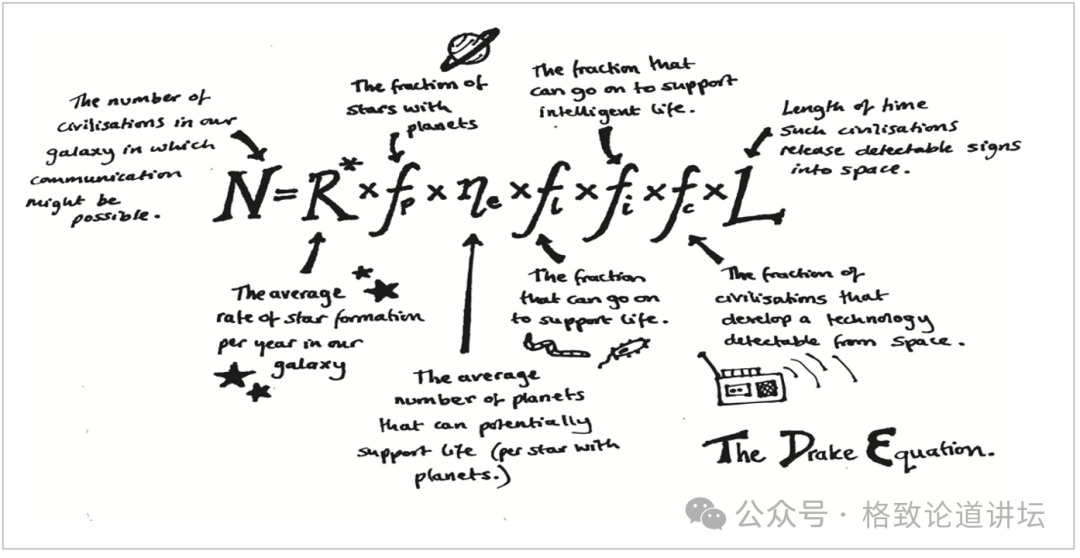 The number of
civilisations in our
galaxy in which
communication
might be
possible.
The fraction of
stars with
planets
The fraction that
can go on to support
intelligent life.
Length of time
such civilisations
release detectable signs
into space.
N = R* × fp × ηe × fl × fi × fc × L
The average
rate of star formation
per year in our
galaxy
The average
number of planets
that can potentially
support life (per star with
planets.)
The fraction
that can go on
to support life.
The fraction of
civilisations that
develop a technology
detectable from space.
The Drake Equation.
公众号 · 格致论道讲坛